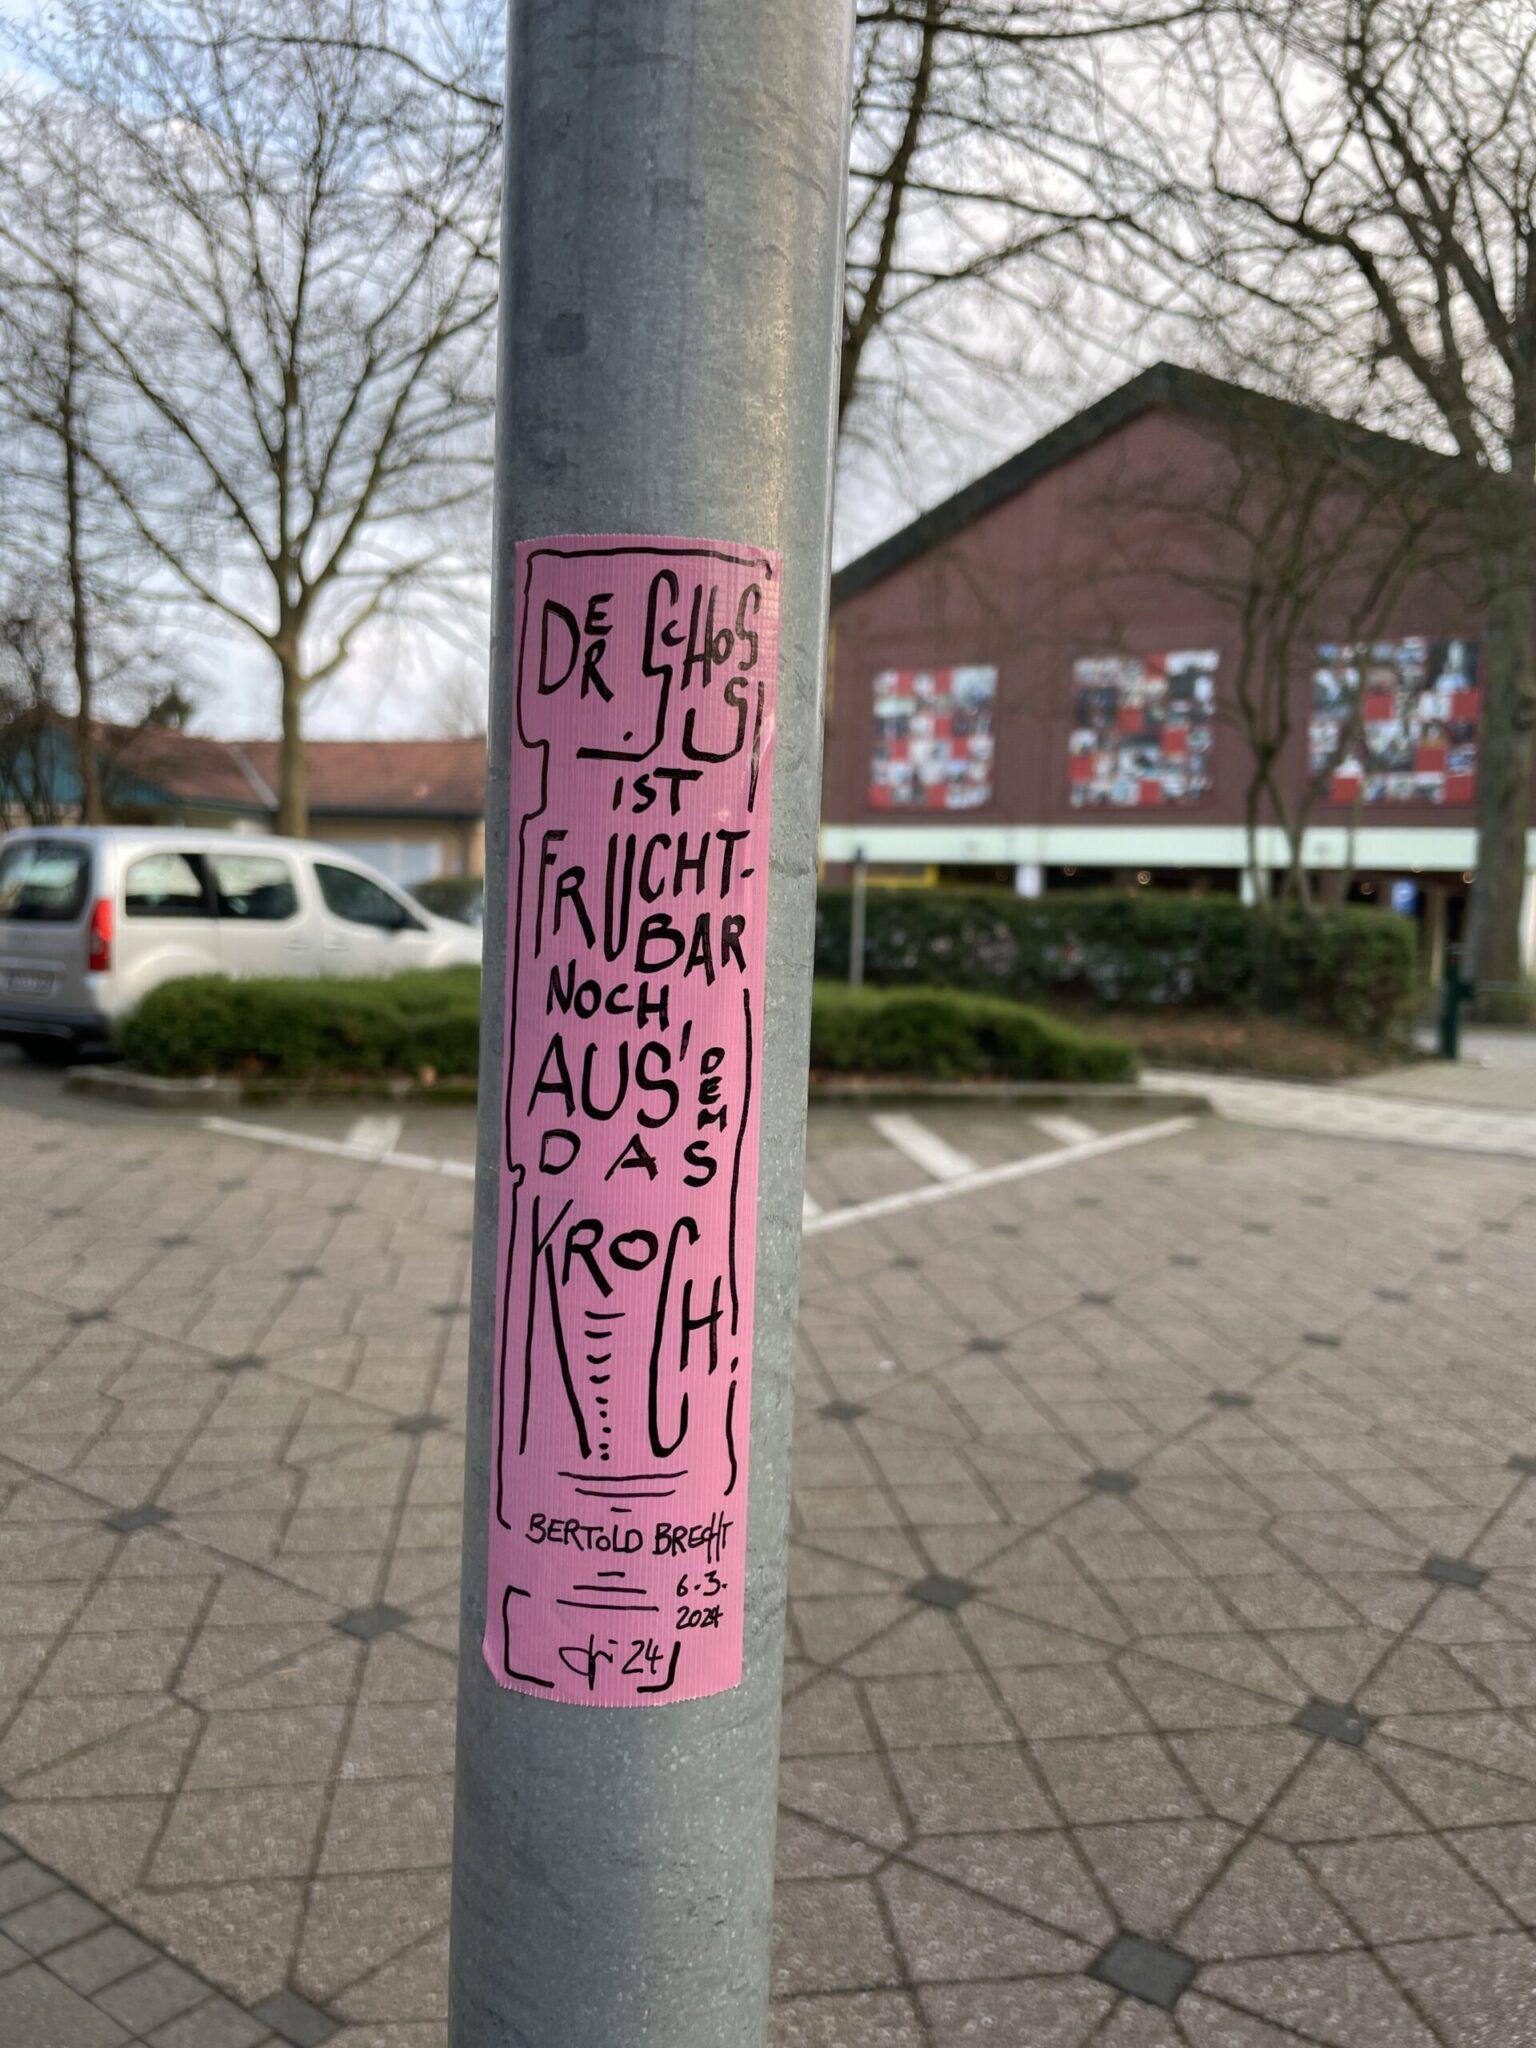 DER SCHOSS
IST
FRUCHT-
BAR
NOCH,
AUS' DEM
DAS
KROCH.
BERTOLD BRECHT
6.3.
2024
24